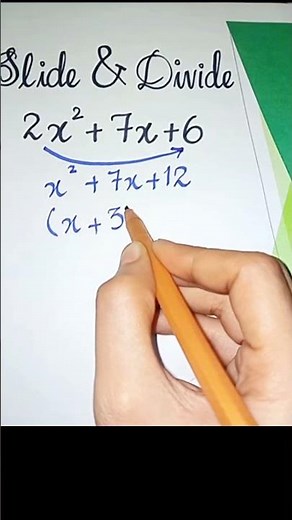 Slide & Divide
2x² + 7x + 6
x² + 7x + 12
(x + 3